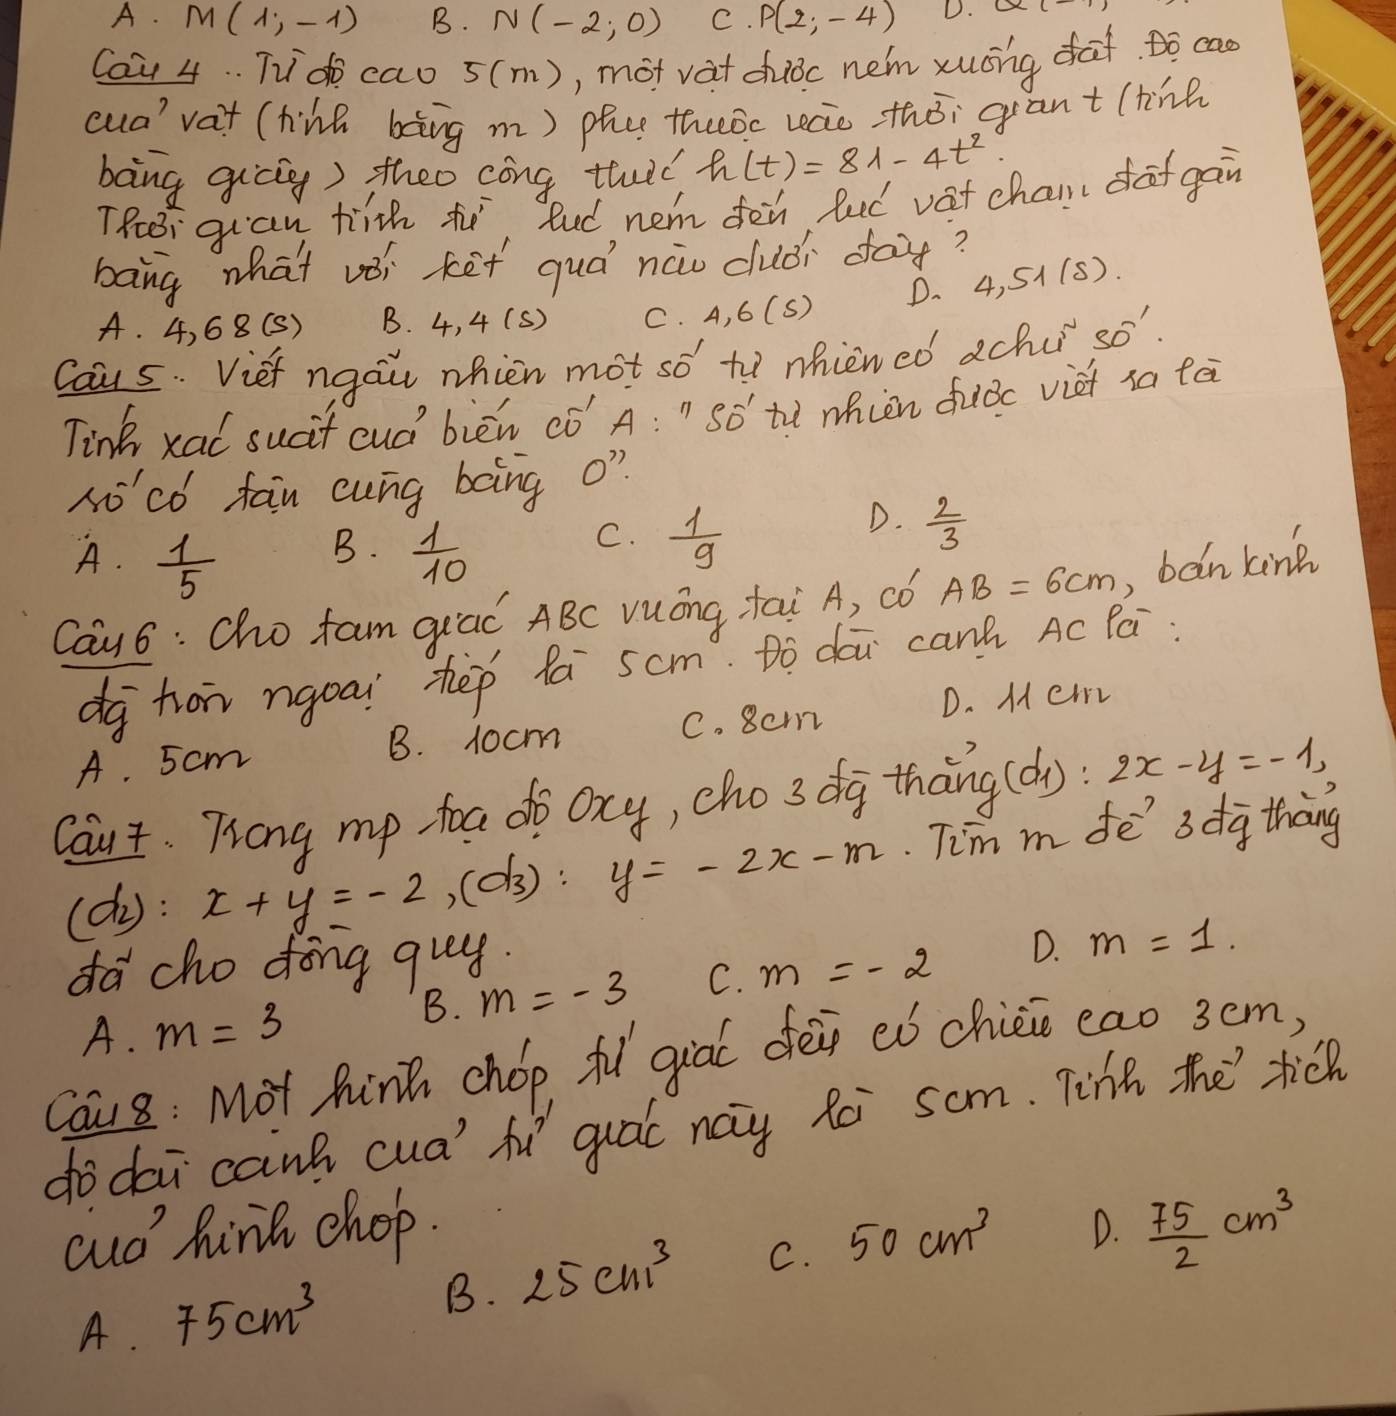 A. M(1; -1) B. N(-2; 0) C. P(2; -4) D.
Câu 4.. Từ độ cao 5(m), một vật được ném xuống đất. Độ cao
của vật (tính bằng m) phụ thuộc vào thời gian t (tính
bằng giây) theo công thức h(t) = 81 - 4t².
Thời gian tính từ lúc ném đến lúc vật chạm đất gần
bằng nhất với kết quả nào dưới đây?
A. 4,68(s) B. 4,4(s) C. 4,6(s) D. 4,51(s).
Câu 5.. Viết ngẫu nhiên một số tự nhiên có 2 chữ số.
Tính xác suất của biến cố A: "Số tự nhiên được viết ra là
số có tận cùng bằng 0".
A. 1/5 B. 1/10 C. 1/9 D. 2/3
Câu 6: Cho tam giác ABC vuông tại A, có AB = 6cm, bán kính
đg tròn ngoại tiếp là 5cm. Độ dài cạnh AC là:
A. 5cm B. 10cm C. 8cm D. 11cm
Câu 7. Trong mp tọa độ Oxy, cho 3 đg thẳng (d1): 2x - y = -1,
(d2): x + y = -2, (d3): y = -2x - m. Tìm m để 3 đg thẳng
đã cho đồng quy.
A. m = 3 B. m = -3 C. m = -2 D. m = 1.
Câu 8: Một hình chóp tứ giác đều có chiều cao 3cm,
độ dài cạnh của tứ giác này là 5cm. Tính thể tích
của hình chóp.
A. 75cm³ B. 25cm³ C. 50cm³ D. 75/2 cm³